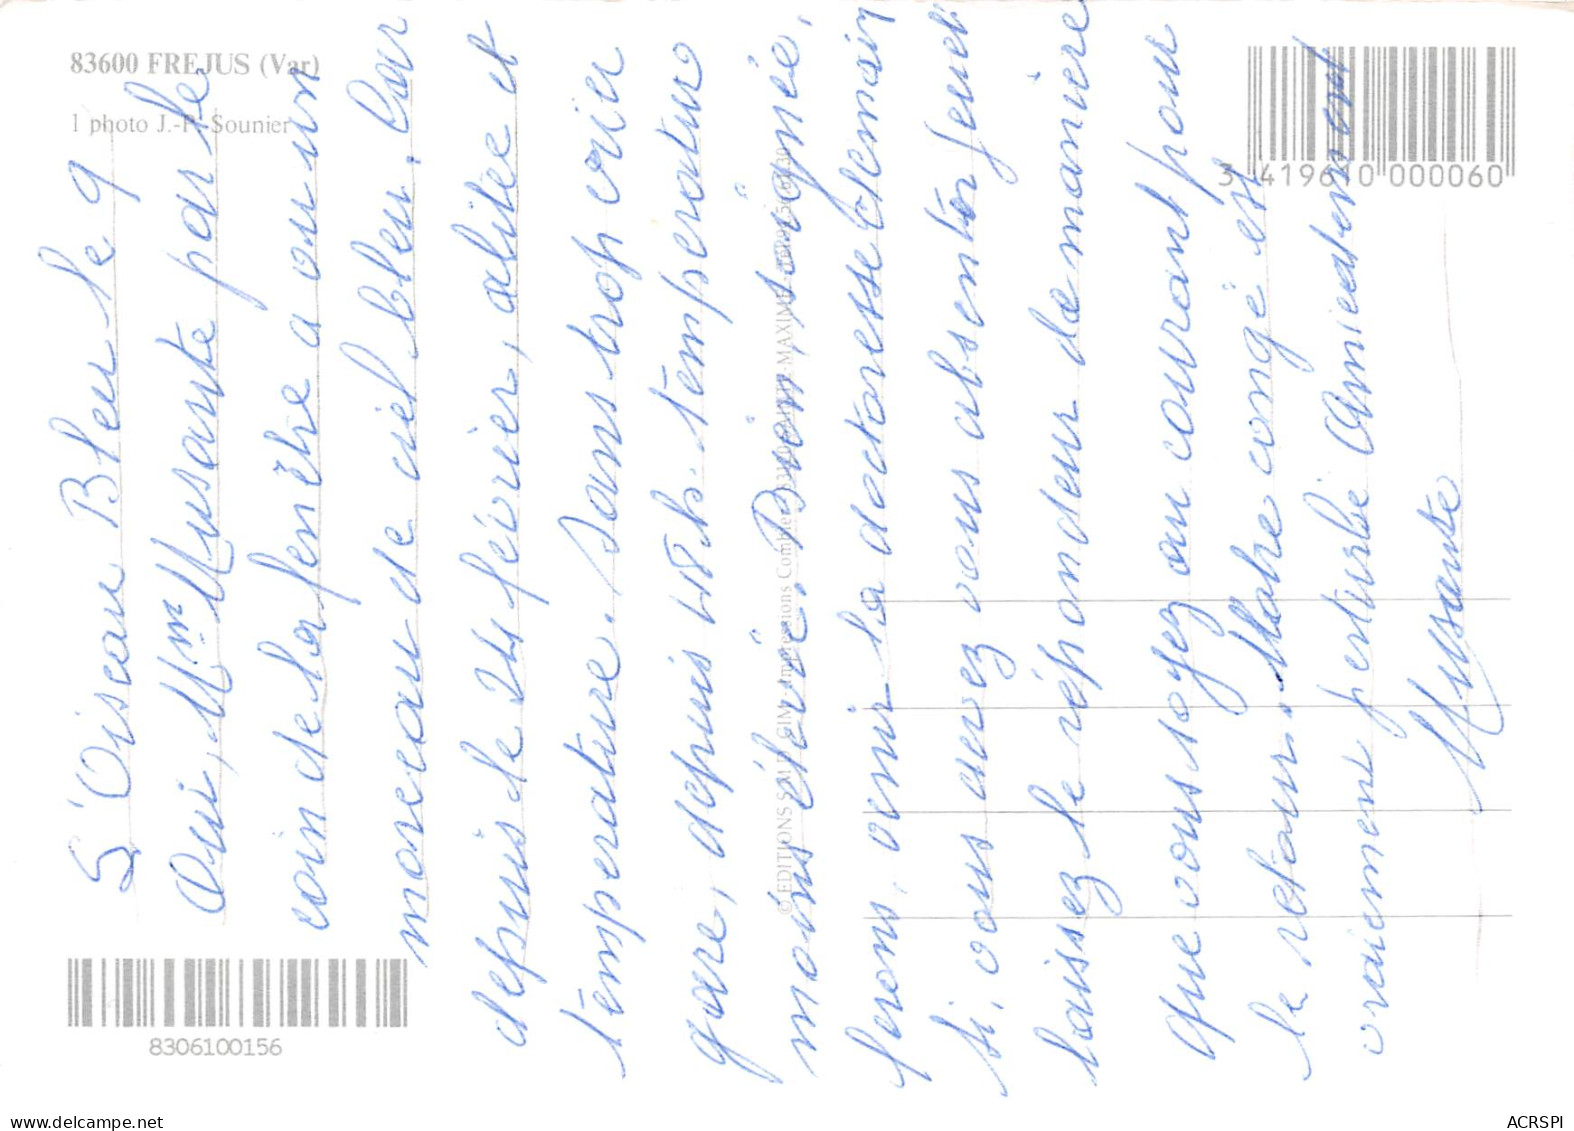 83600 FREJUS (Var)
1 photo J.-P. Sounier
L'Oiseau Bleu le 9
Oui, Mme Musante par le
coin de la fenêtre a vu un
morceau de ciel bleu. Car
depuis le 24 février, alitée et
température. Sans trop crier
gare, depuis 48 h. température
moins élevée. Bien soignée,
ferons venir la doctoresse demain
si, vous avez vous absenter jeudi
laissez le répondeur de manière
que vous soyez au courant pour
le retour. Notre congé est
vraiment perturbé Amicalement
Musante
© EDITIONS S.M.D. GIM - Impressions Combier
MAXIME
3 419610 000060
8306100156
www.delcampe.net
ACRSPI